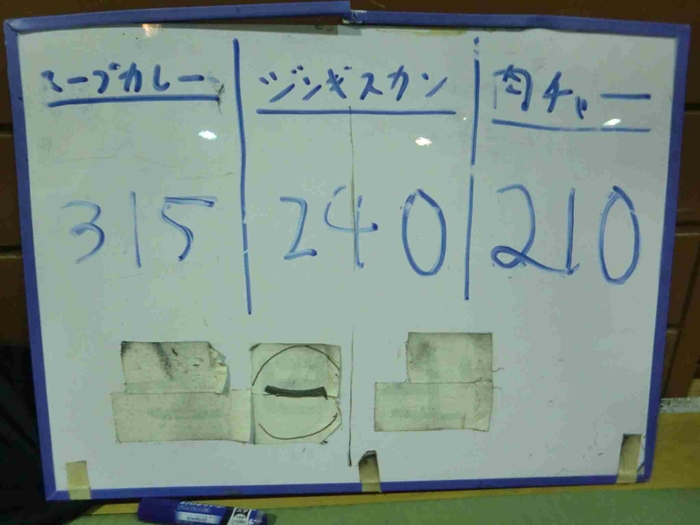 スープカレー
ジンギスカン
肉チャー
315
240
210